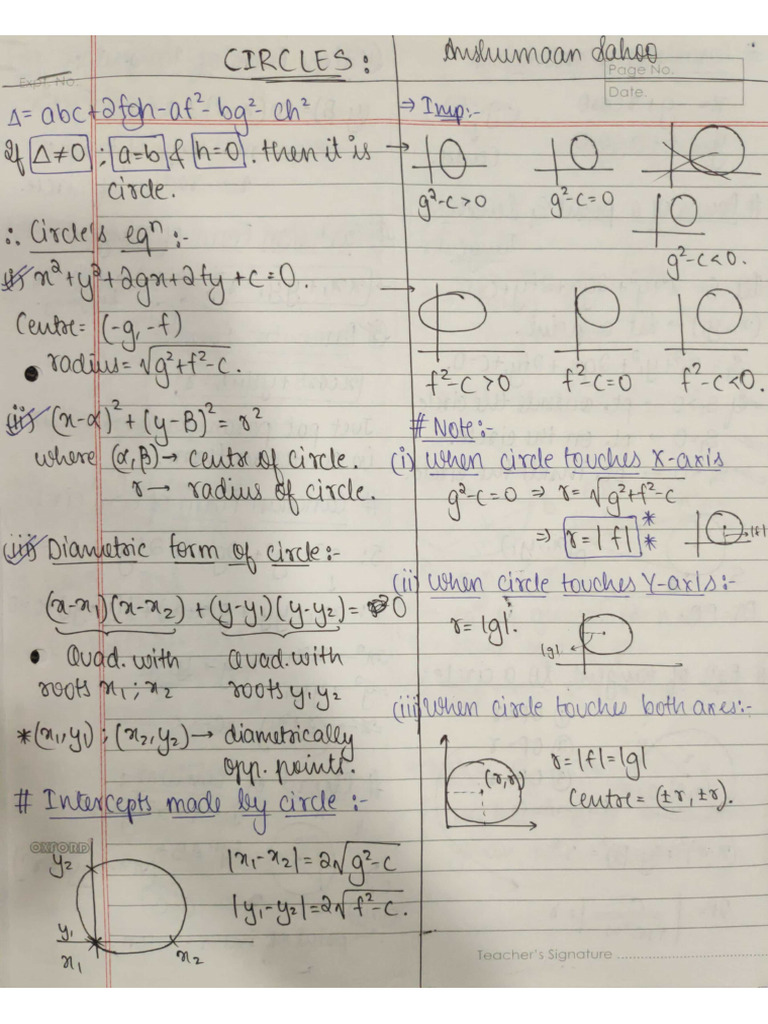 CIRCLES:
Anshumaan Sahoo
Expt. No.
Page No.
Date.
Δ= abc+2fgh-af²-bg²-ch²
If Δ≠0 ; a=b & h=0 . then it is
circle.
∴ Circle's eqⁿ:-
(i) x²+y²+2gx+2fy+c=0.
Centre= (-g,-f)
• radius= √g²+f²-c.
(ii) (x-α)²+(y-β)²= r²
where (α,β)→ centre of circle.
r→ radius of circle.
(iii) Diametric form of circle:-
(x-x₁)(x-x₂)+(y-y₁)(y-y₂)= 0
• Quad. with Quad. with
roots x₁; x₂ roots y₁ y₂
*(x₁,y₁) ; (x₂,y₂)→ diametrically
opp. points.
# Intercepts made by circle:-
OXFORD
y₂
y₁
x₁
x₂
|x₁-x₂|=2√g²-c
|y₁-y₂|=2√f²-c.
→ Imp:-
→
g²-c>0 g²-c=0
g²-c<0.
→
f²-c>0 f²-c=0 f²-c<0.
# Note:-
(i) When circle touches X-axis
g²-c=0 ⇒ r= √g²+f²-c
⇒ r=|f| * * |f|
(ii) When circle touches Y-axis:-
r= |g|.
|g|.
(iii) When circle touches both axes:-
(r,r)
r=|f|=|g|
Centre= (±r,±r).
Teacher's Signature